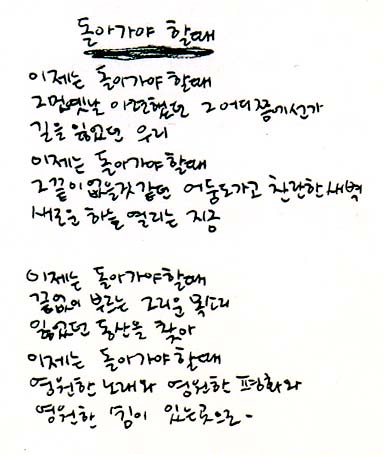 돌아가야 할때
이제는 돌아가야 할때
그멉옛날 이별했던 그 어디쯤에선가
길을 잃었던 우리
이제는 돌아가야 할때
그끝이 없을것 같던 어둠도가고 찬란한 새벽
새로운 하늘 열리는 지금
이제는 돌아가야 할때
끝없이 부르는 그리운 목소리
잃었던 동산을 찾아
이제는 돌아가야 할때
영원한 노래와 영원한 평화와
영원한 쉼이 있는곳으로-